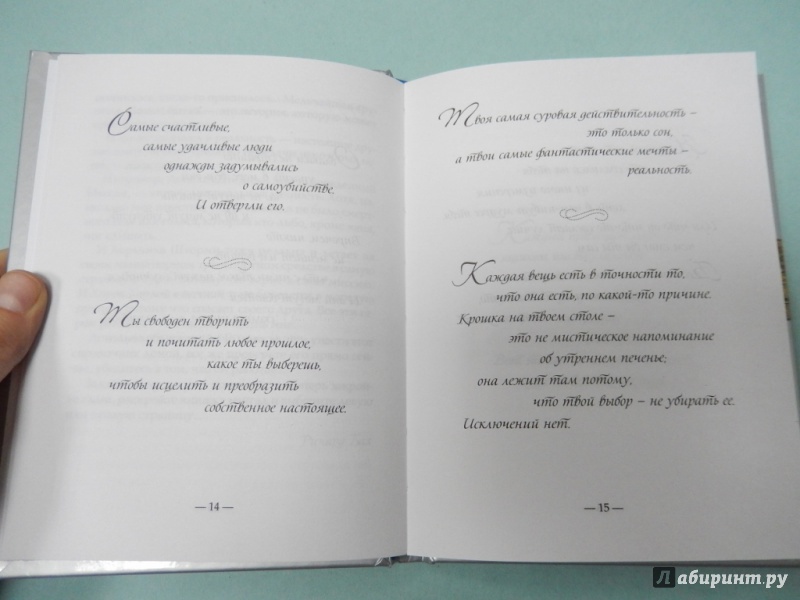 Самые счастливые,
самые удачливые люди
однажды задумывались
о самоубийстве.
И отвергли его.
Ты свободен творить
и почитать любое прошлое,
какое ты выберешь,
чтобы исцелить и преобразить
собственное настоящее.
— 14 —
Твоя самая суровая действительность –
это только сон,
а твои самые фантастические мечты –
реальность.
Каждая вещь есть в точности то,
что она есть, по какой-то причине.
Крошка на твоем столе –
это не мистическое напоминание
об утреннем печенье;
она лежит там потому,
что твой выбор – не убирать ее.
Исключений нет.
— 15 —
Лабиринт.ру